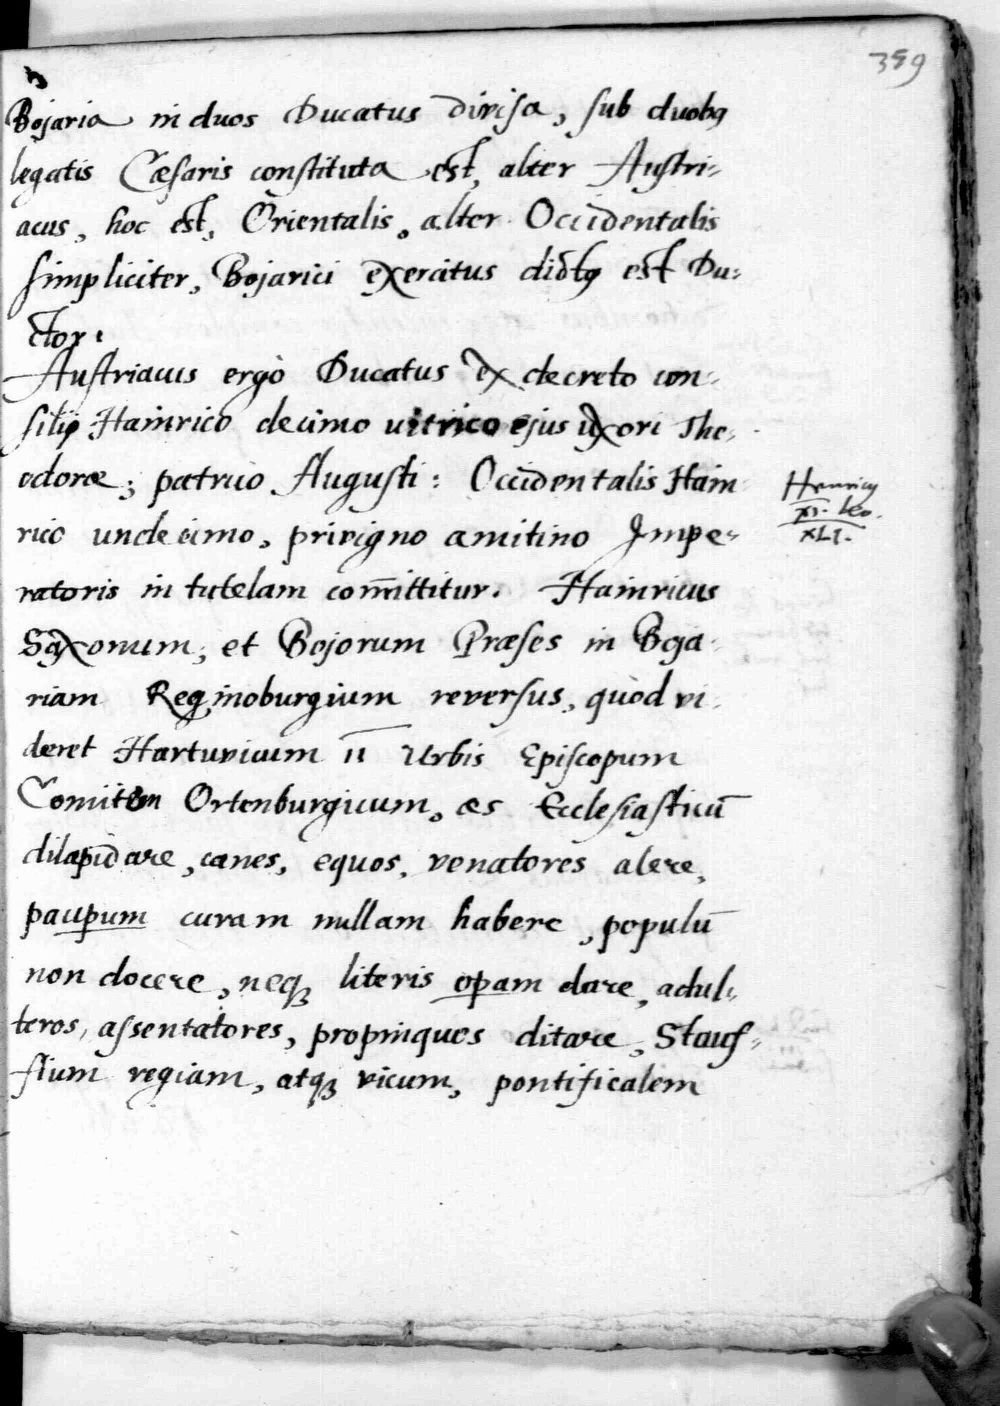 399
Bojaria in duos Ducatus divisa, sub duobꝰ
legatis Cæsaris constituta est, alter Austri-
acus, hoc est, Orientalis, alter Occidentalis
simpliciter, Bojarici exercitus dictꝰ est Du-
ctor.
Austriacus ergò Ducatus ex decreto con-
silij Hainrico decimo vitrico ejus uxori The-
odoræ; patruo Augusti: Occidentalis Hain
rico undecimo, privigno amitino Impe-
ratoris in tutelam com̄ittitur. Hainricus
Saxonum, et Bojorum Præses in Boja-
riam Reginoburgium reversus, quòd vi-
deret Hartuvicum II Urbis Episcopum
Comitem Ortenburgicum, æs Ecclesiasticū
dilapidare, canes, equos, venatores alere,
paupum curam nullam habere, populū
non docere, neqꝫ literis opam dare, adul-
teros, assentatores, propinquos ditare, Stauf-
fium regiam, atqꝫ vicum, pontificalem
Henricꝰ
XI. Leo.
XLI.